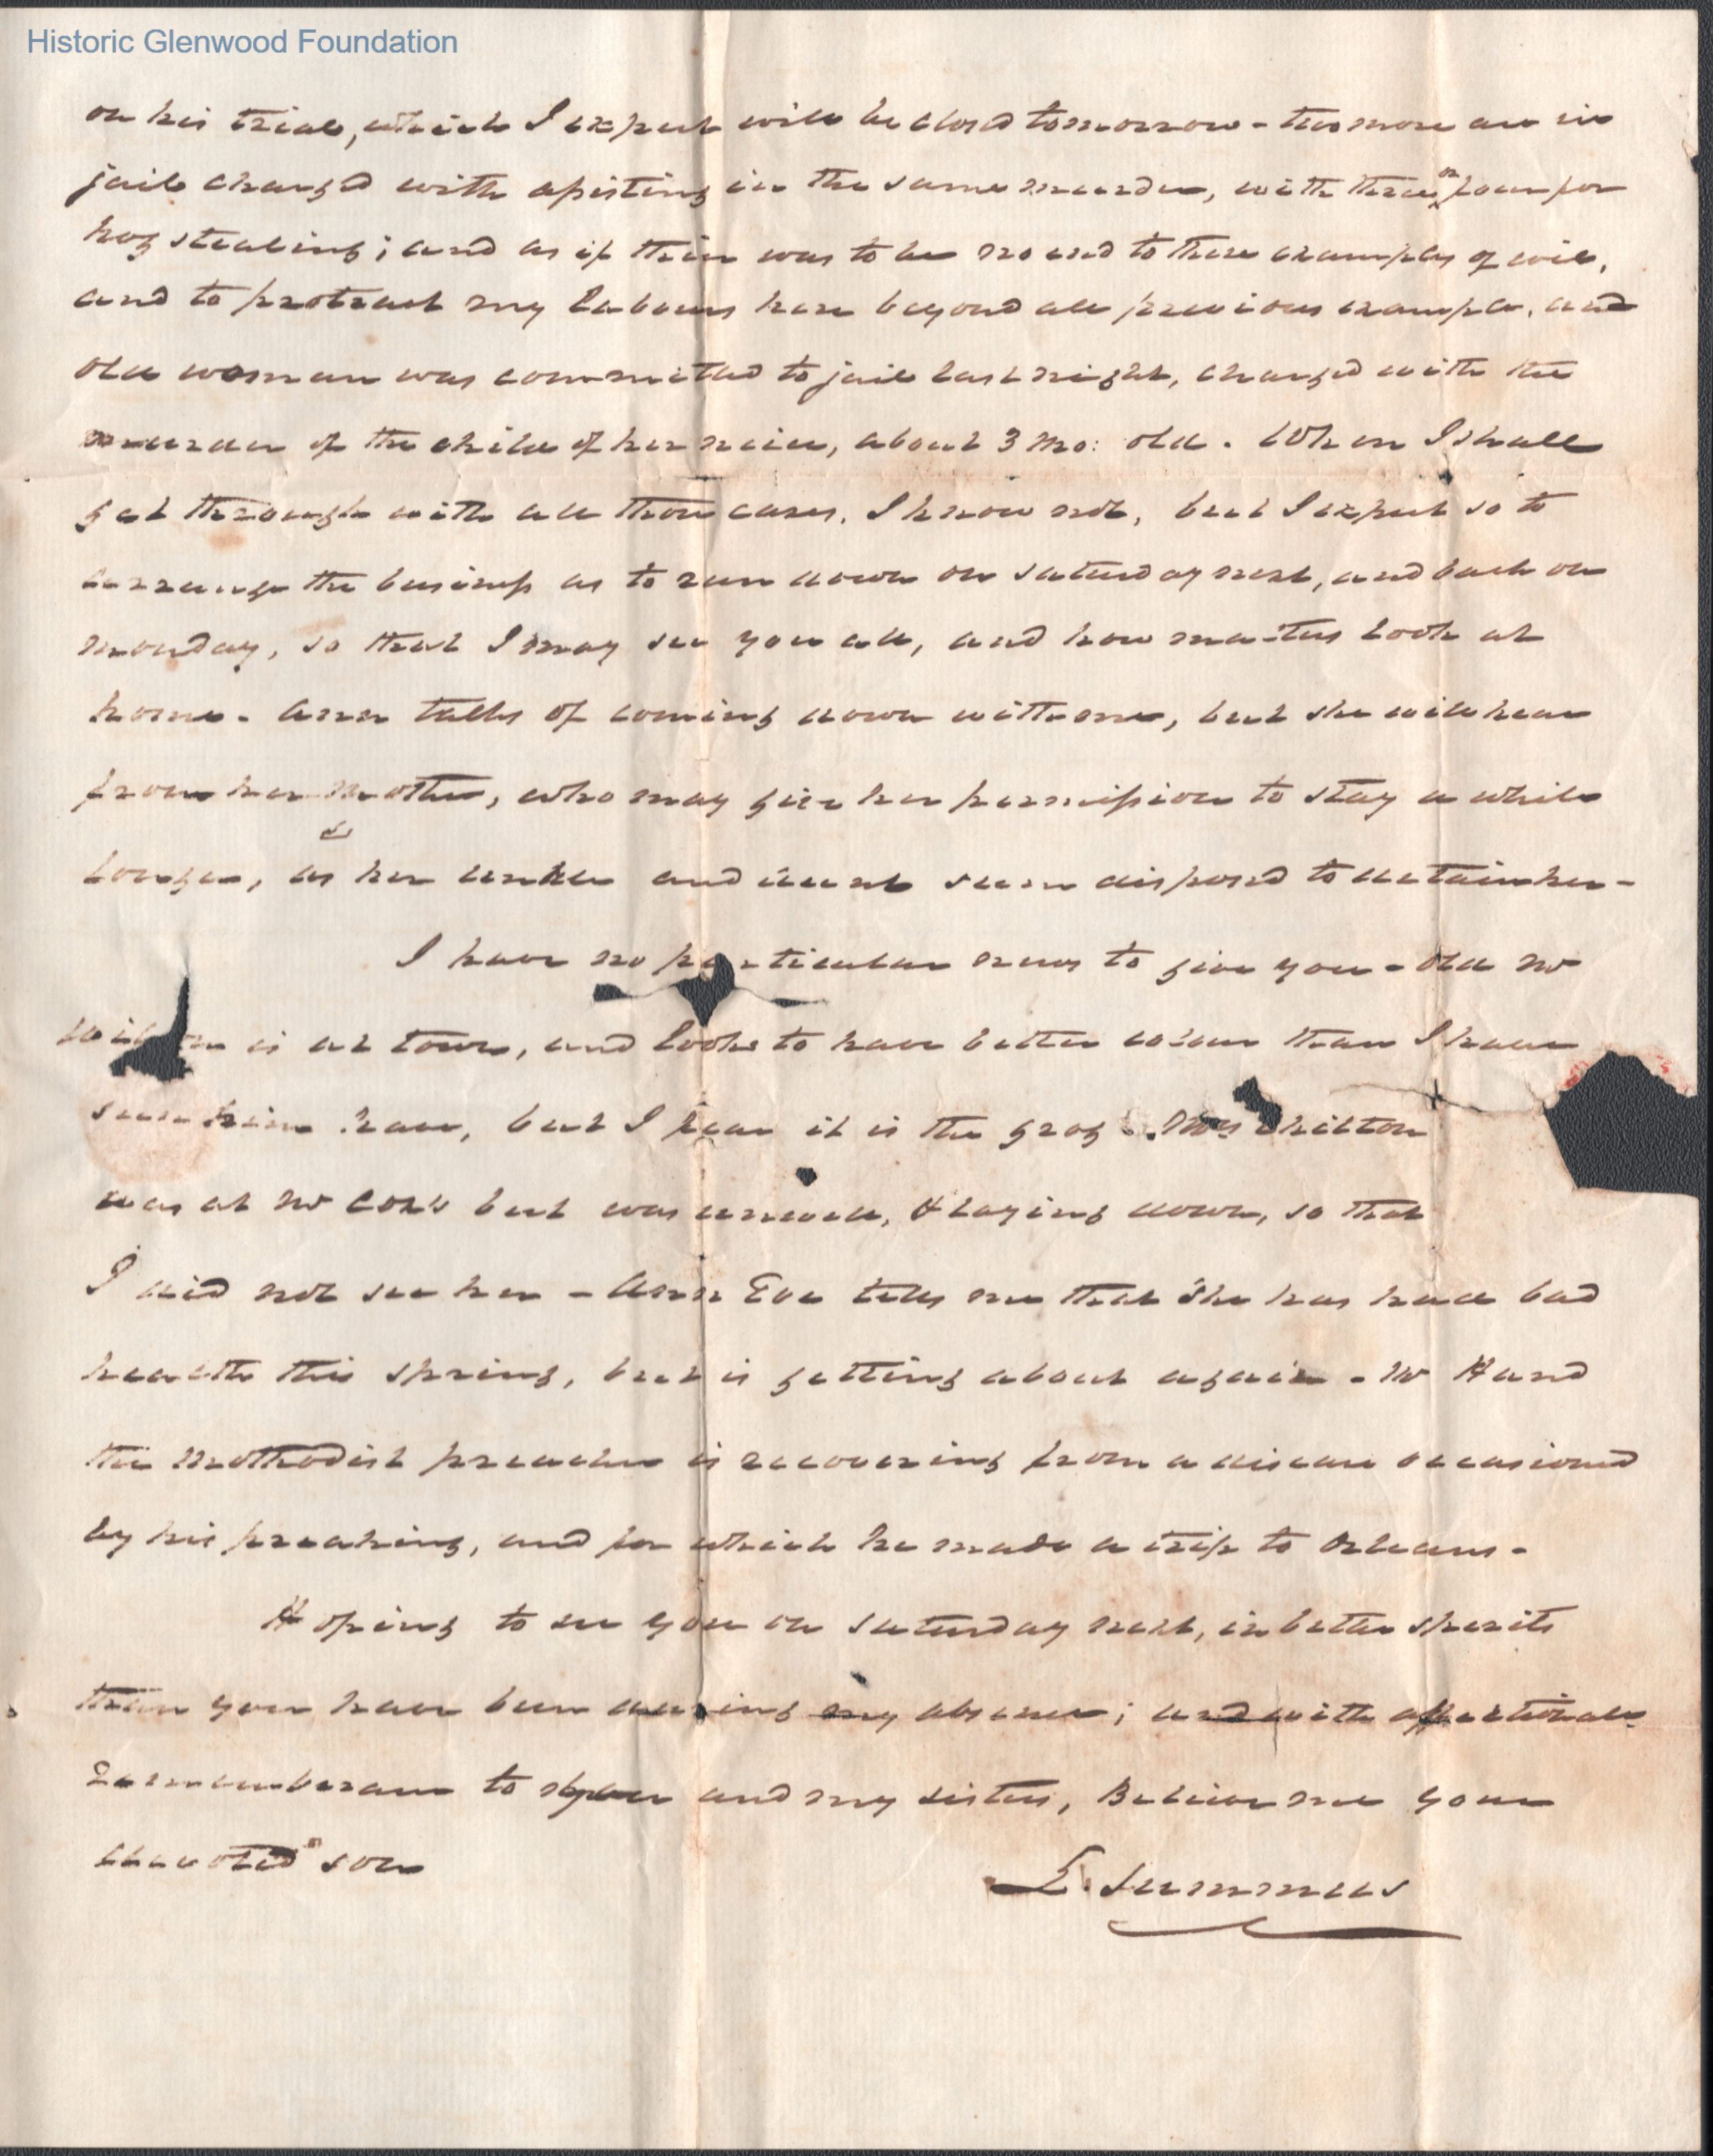 Historic Glenwood Foundation
on his trial, which I expect will be closd tomorrow - two more are in
jail chargd with assisting in the same murder, with three or four for
hog stealing; and as if their was to be no end to these examples of evil,
and to protract my labours here beyond all previous example, and
old woman was committed to jail last night, chargd with the
murder of the child of her niece, about 3 mo: old. When I shall
get through with all those cases, I know not, but I expect so to
arrange the business as to run down on saturday next, and back on
monday, so that I may see you all, and how matters look at
home. Ann talks of coming down with me, but she will hear
from her mother, who may give her permission to stay a while
longer, as her uncle and aunt seem disposd to detain her -
I have no particular news to give you - old Mr
is at town, and looks to have better colour than I have
seen him have, but I fear it is the grog. Mrs Shilton
was at Mr Cox's but was unwell, & laying down, so that
I did not see her - Ann Eve tells me that she has had bad
health this spring, but is getting about again - Mr Hand
the Methodist preacher is recovering from a disease occasioned
by his preaching, and for which he made a trip to Orleans -
Hoping to see you on saturday next, in better spirits
than you have been during my absence; and with affectionate
rememberance to you and my sisters, Believe me your
devoted son
L. Summers